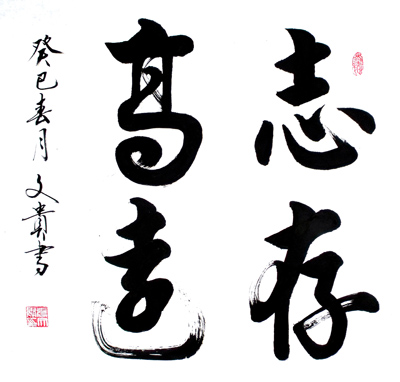 志存
高远
癸巳春月文貴書